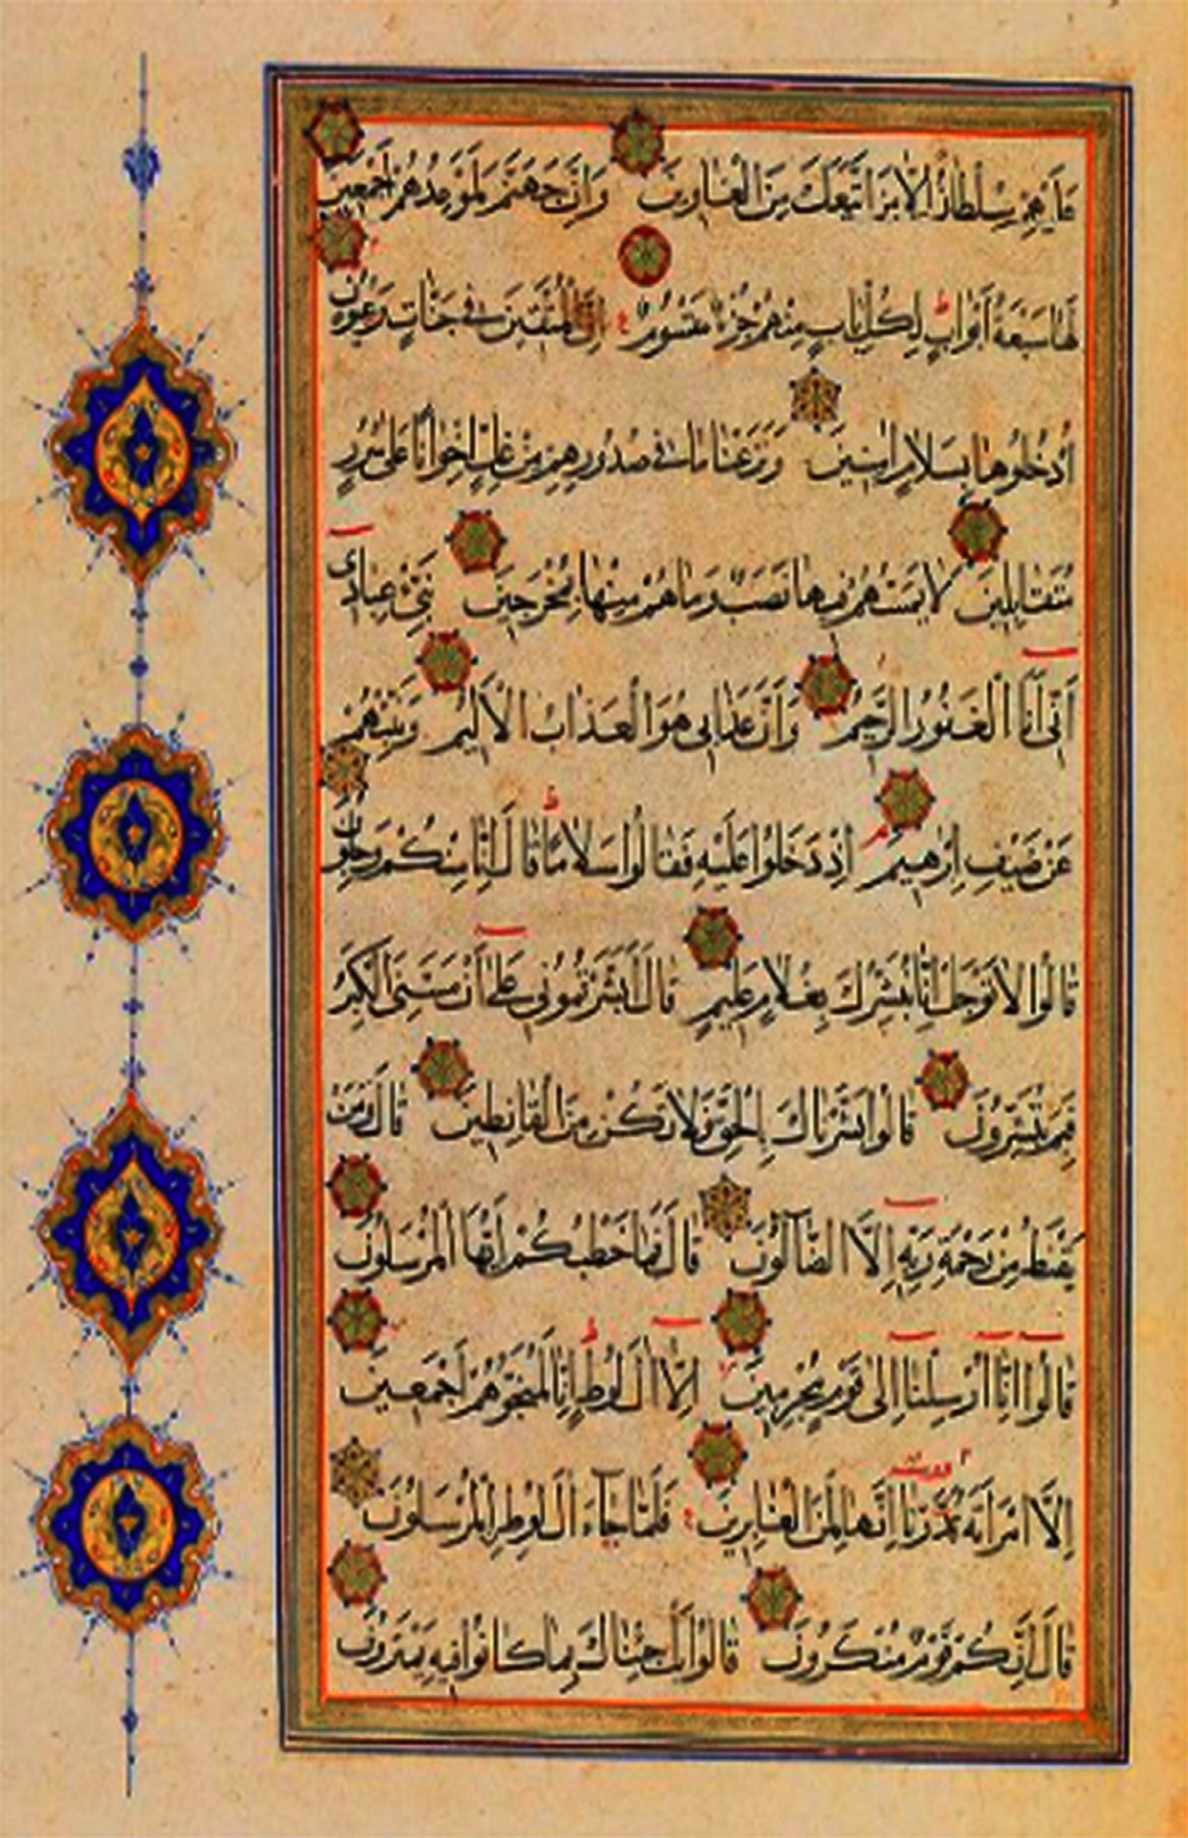 عَلَيْهِمْ سُلْطَانٌ إِلَّا مَنِ اتَّبَعَكَ مِنَ الْغَاوِينَ وَإِنَّ جَهَنَّمَ لَمَوْعِدُهُمْ أَجْمَعِينَ
لَهَا سَبْعَةُ أَبْوَابٍ لِكُلِّ بَابٍ مِنْهُمْ جُزْءٌ مَقْسُومٌ إِنَّ الْمُتَّقِينَ فِي جَنَّاتٍ وَعُيُونٍ
اُدْخُلُوهَا بِسَلَامٍ آمِنِينَ وَنَزَعْنَا مَا فِي صُدُورِهِمْ مِنْ غِلٍّ إِخْوَانًا عَلَى سُرُرٍ
مُتَقَابِلِينَ لَا يَمَسُّهُمْ فِيهَا نَصَبٌ وَمَا هُمْ مِنْهَا بِمُخْرَجِينَ نَبِّئْ عِبَادِي
أَنِّي أَنَا الْغَفُورُ الرَّحِيمُ وَأَنَّ عَذَابِي هُوَ الْعَذَابُ الْأَلِيمُ وَنَبِّئْهُمْ
عَنْ ضَيْفِ إِبْرَهِيمَ إِذْ دَخَلُوا عَلَيْهِ فَقَالُوا سَلَامًا قَالَ إِنَّا مِنْكُمْ وَجِلُونَ
قَالُوا لَا تَوْجَلْ إِنَّا نُبَشِّرُكَ بِغُلَامٍ عَلِيمٍ قَالَ أَبَشَّرْتُمُونِي عَلَى أَنْ مَسَّنِيَ الْكِبَرُ
فَبِمَ تُبَشِّرُونَ قَالُوا بَشَّرْنَاكَ بِالْحَقِّ فَلَا تَكُنْ مِنَ الْقَانِطِينَ قَالَ وَمَنْ
يَقْنَطُ مِنْ رَحْمَةِ رَبِّهِ إِلَّا الضَّآلُّونَ قَالَ فَمَا خَطْبُكُمْ أَيُّهَا الْمُرْسَلُونَ
قَالُوا إِنَّا أُرْسِلْنَا إِلَى قَوْمٍ مُجْرِمِينَ إِلَّا آلَ لُوطٍ إِنَّا لَمُنَجُّوهُمْ أَجْمَعِينَ
إِلَّا امْرَأَتَهُ قَدَّرْنَا إِنَّهَا لَمِنَ الْغَابِرِينَ فَلَمَّا جَاءَ آلَ لُوطٍ الْمُرْسَلُونَ
قَالَ إِنَّكُمْ قَوْمٌ مُنْكَرُونَ قَالُوا بَلْ جِئْنَاكَ بِمَا كَانُوا فِيهِ يَمْتَرُونَ